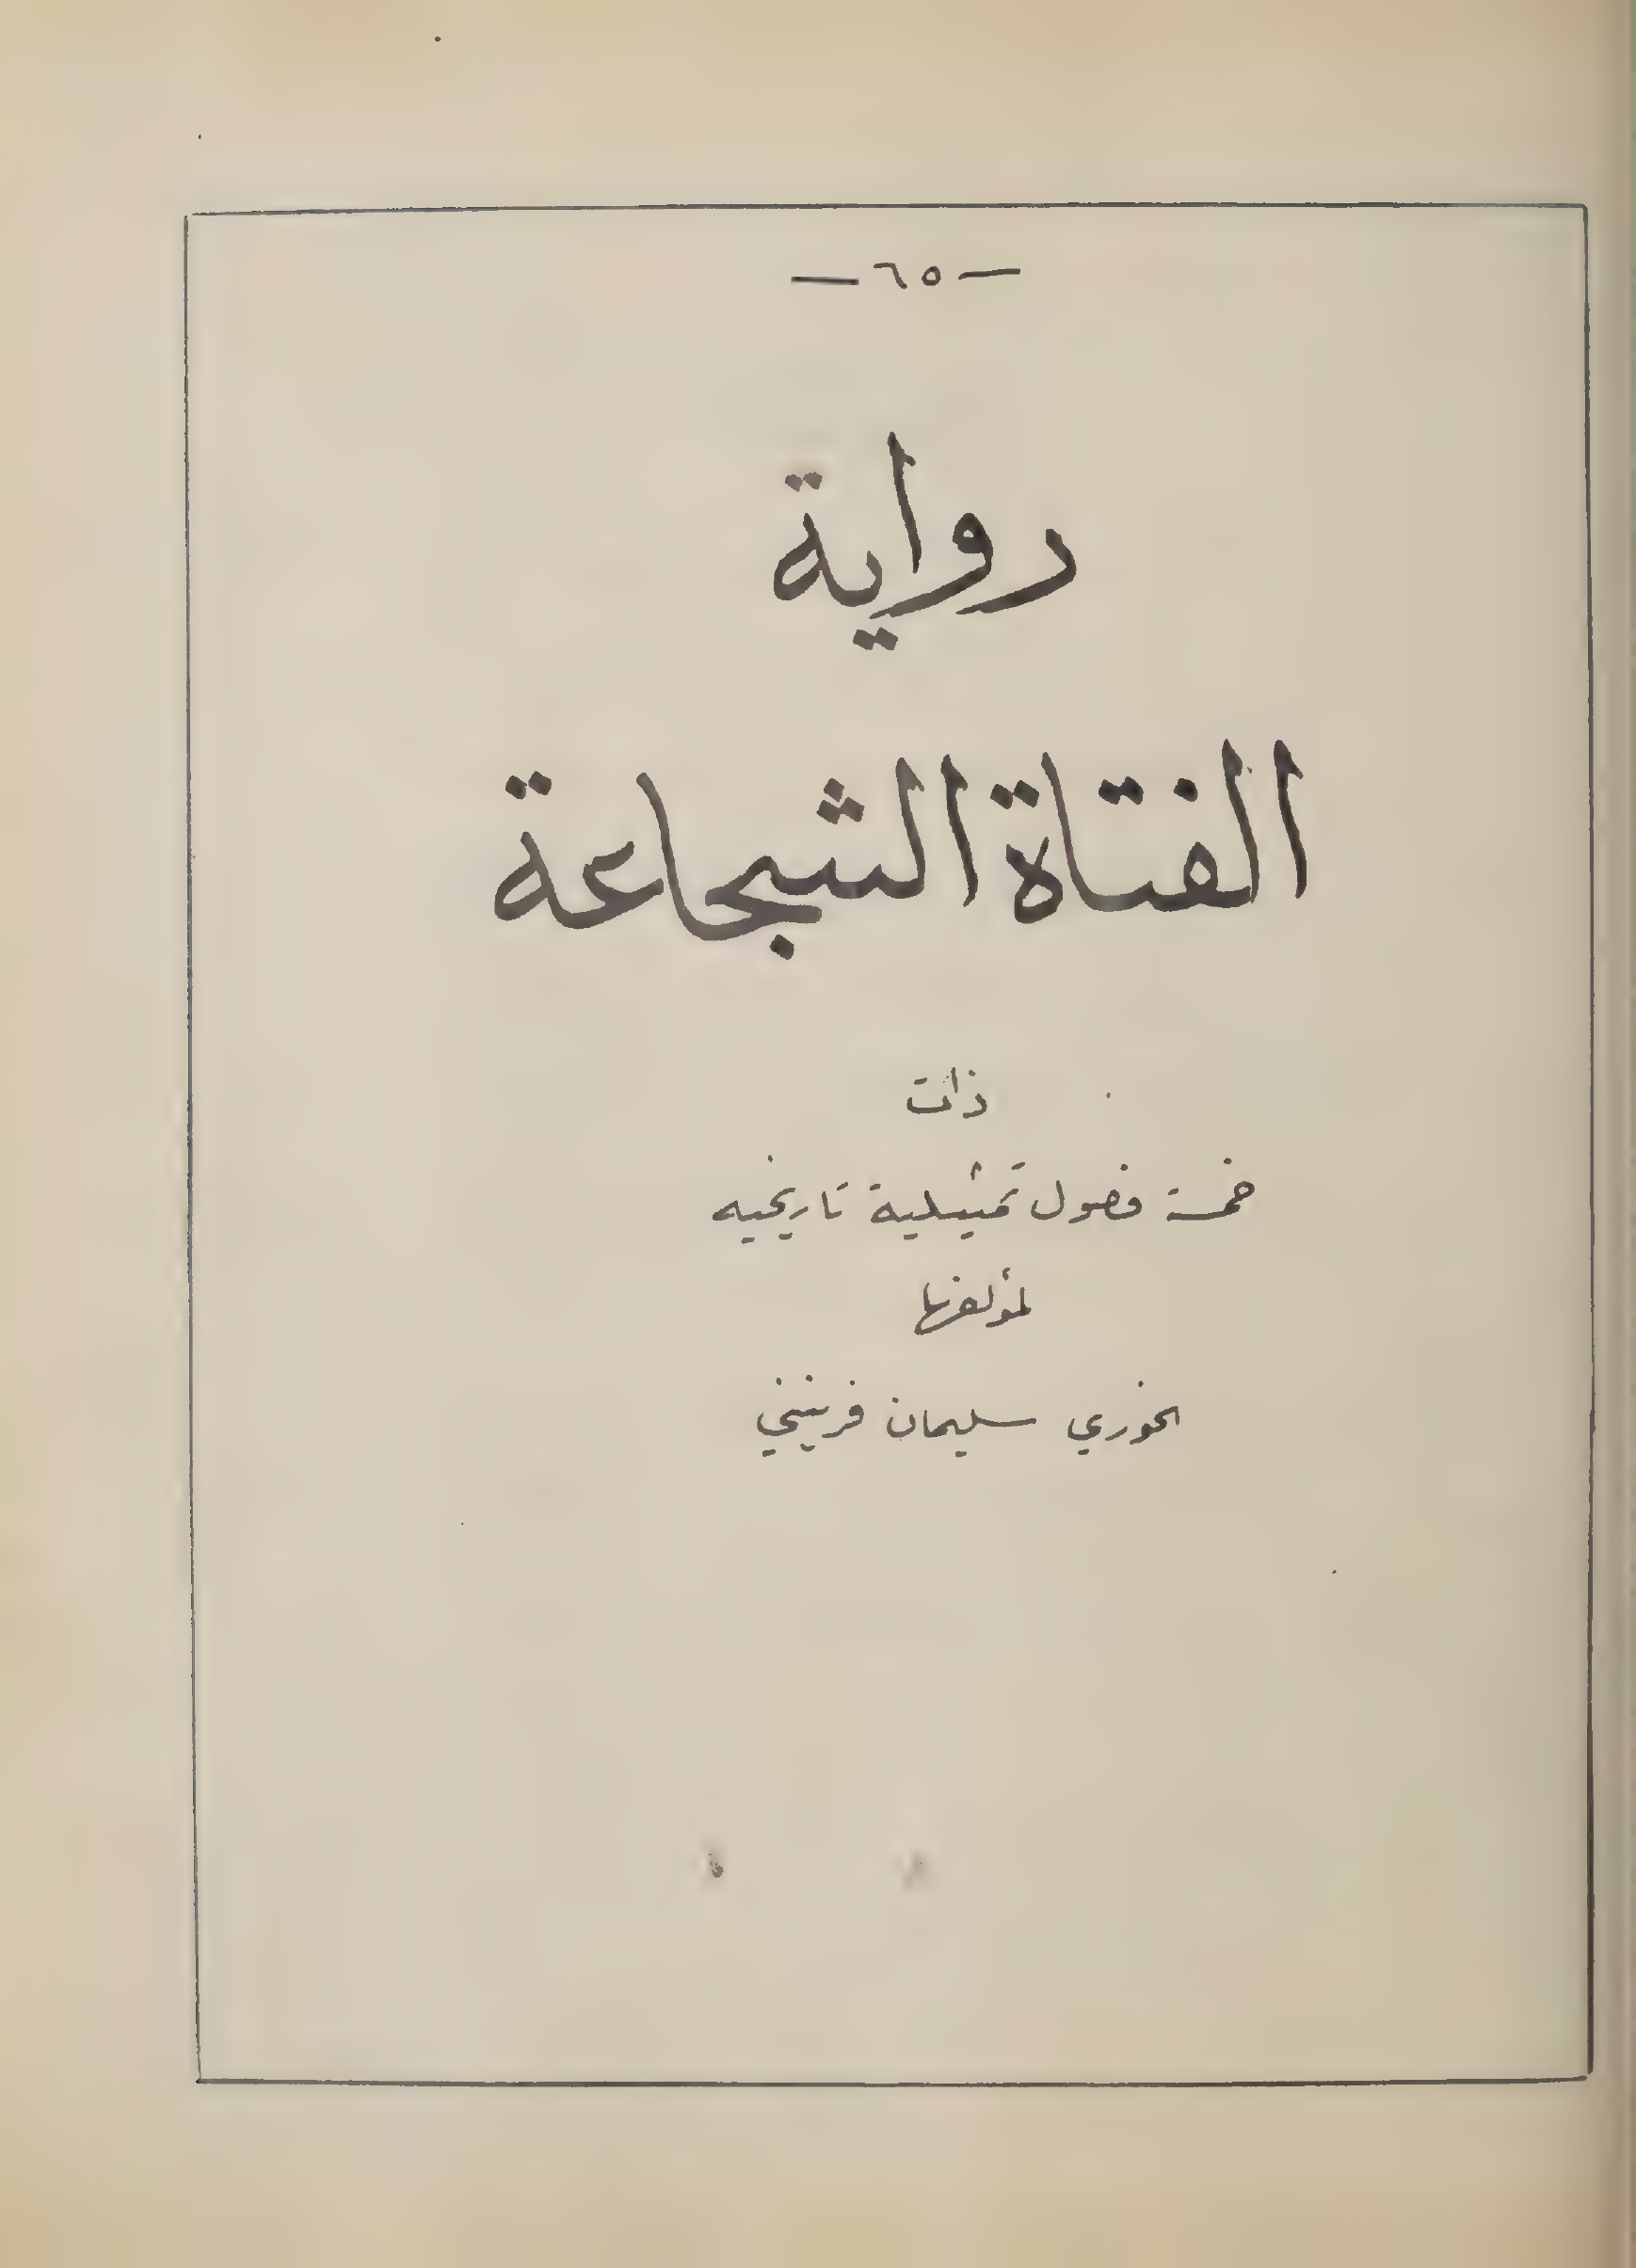 — ٦٥ —
رواية
الفتاة الشجاعة
ذات
خمسة فصول تمثيلية تاريخيه
لمؤلفها
الخوري سليمان فرينيني